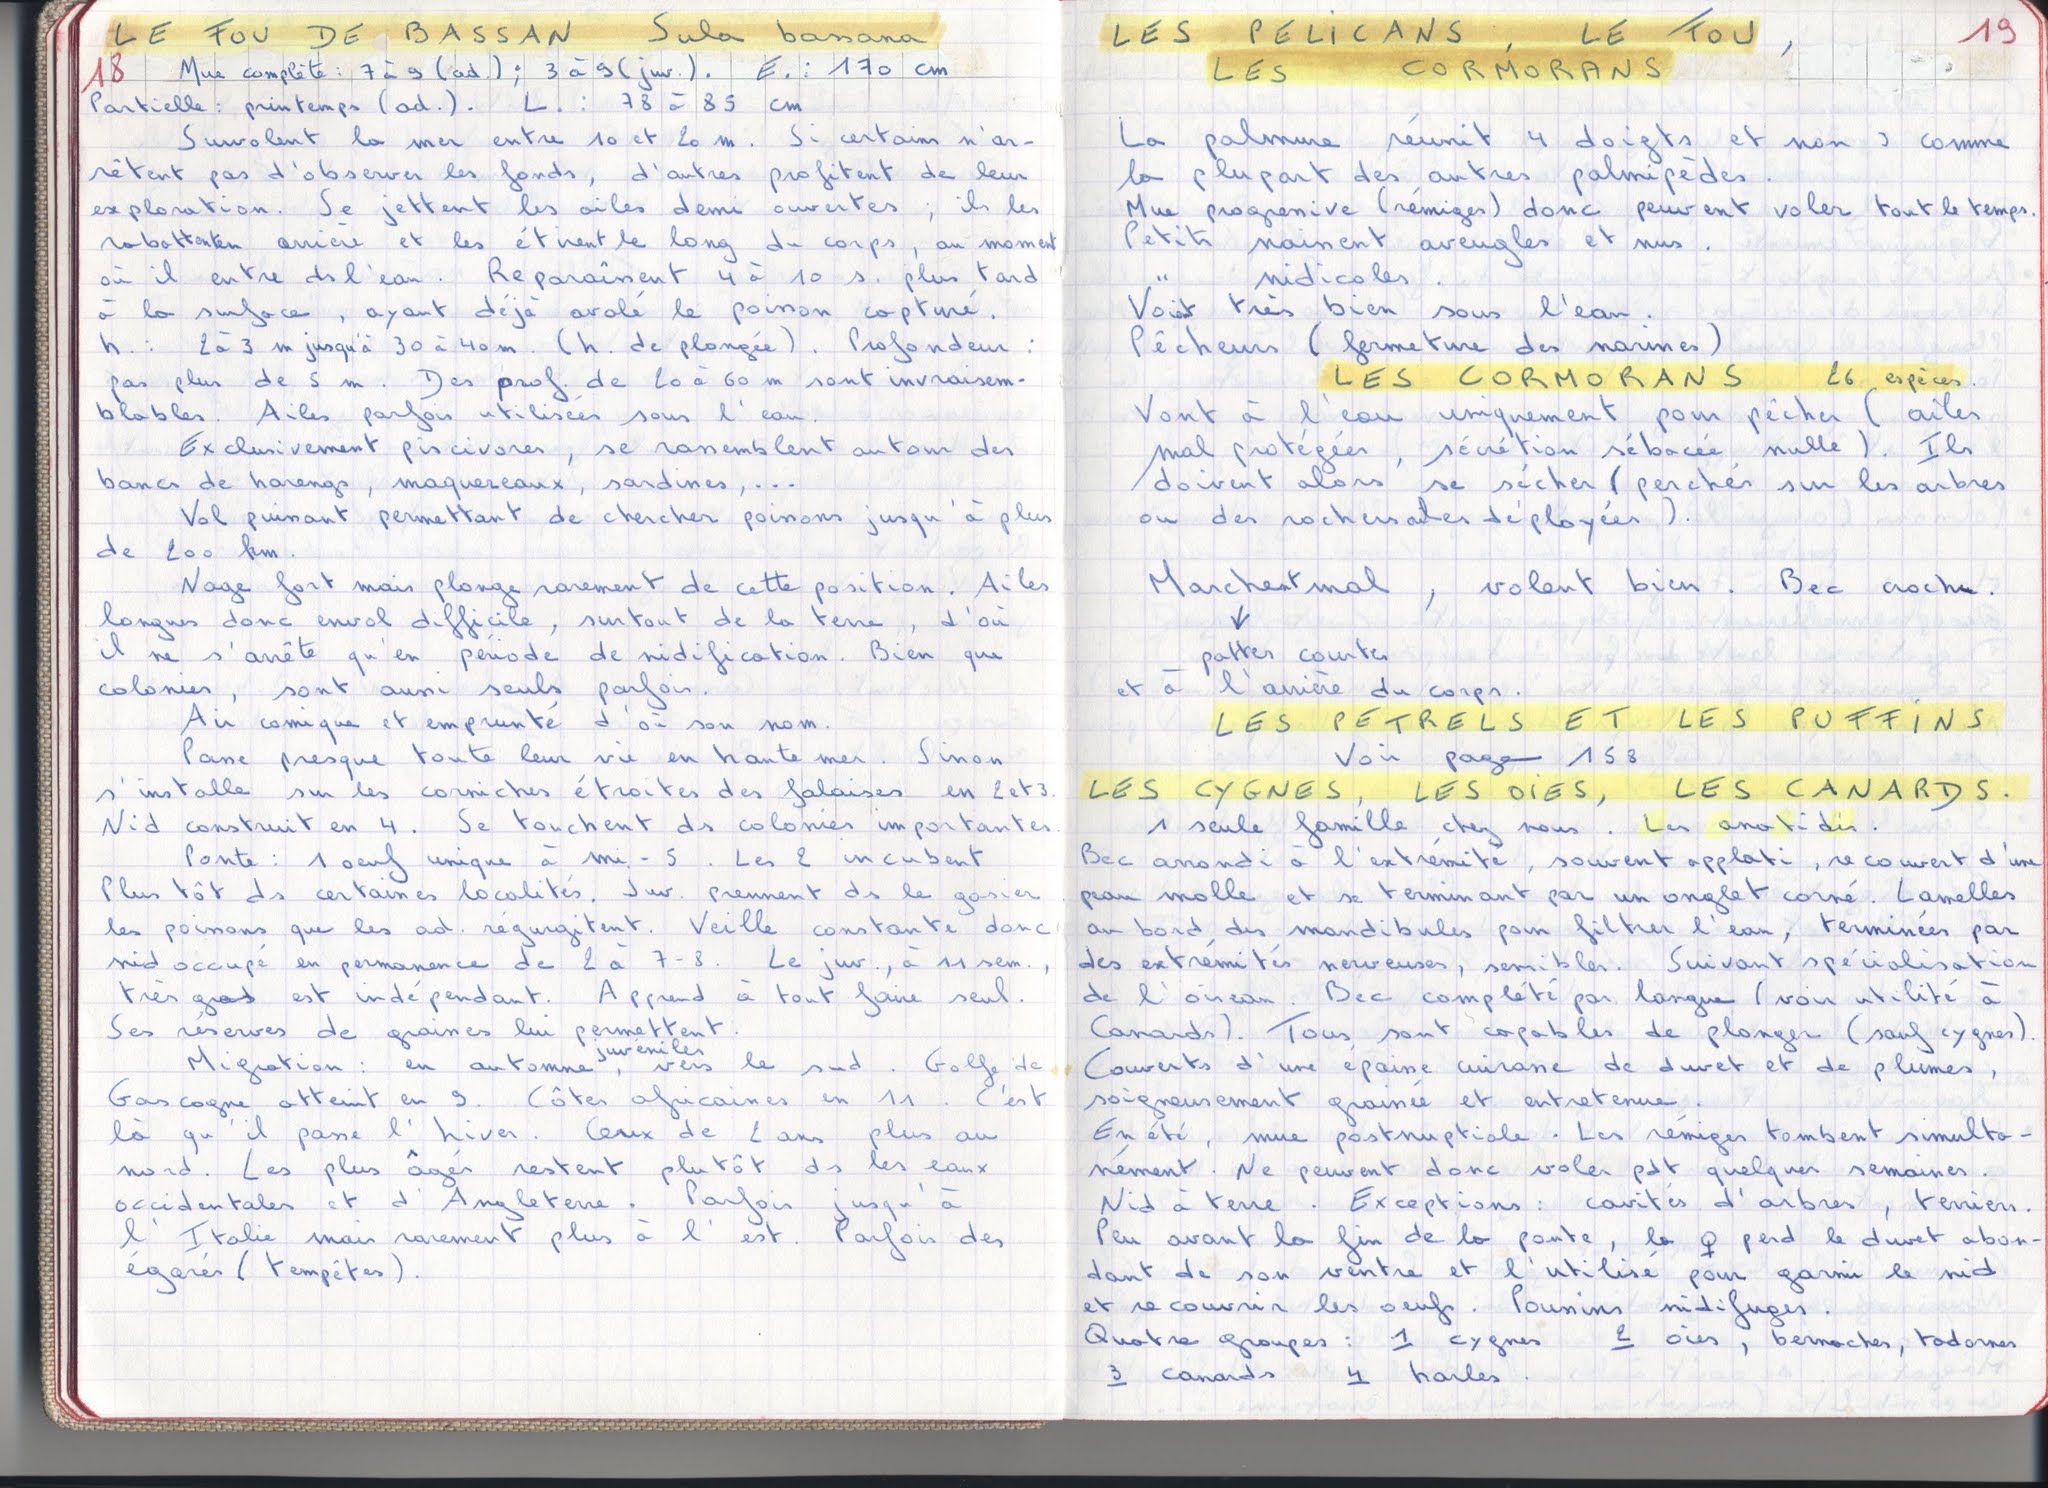 LE FOU DE BASSAN Sula bassana
18 Mue complète : 7 à 9 (ad.) ; 3 à 9 (juv.). E. : 170 cm
Partielle : printemps (ad.). L. : 78 à 85 cm
Survolent la mer entre 10 et 20 m. Si certains n'ar-
rêtent pas d'observer les fonds, d'autres profitent de leur
exploration. Se jettent les ailes demi ouvertes ; ils les
rabattent en arrière et les étirent le long du corps, au moment
où il entre ds l'eau. Reparaissent 4 à 10 s. plus tard
à la surface, ayant déjà avalé le poisson capturé.
h. : 2 à 3 m jusqu'à 30 à 40 m. (h. de plongée). Profondeur :
pas plus de 5 m. Des prof. de 20 à 60 m sont invraisem-
blables. Ailes parfois utilisées sous l'eau.
Exclusivement piscivores, se rassemblent autour des
bancs de harengs, maquereaux, sardines, ...
Vol puissant permettant de chercher poissons jusqu'à plus
de 200 km.
Nage fort mais plonge rarement de cette position. Ailes
longues donc envol difficile, surtout de la terre, d'où
il ne s'arrête qu'en période de nidification. Bien que
colonies, sont aussi seuls parfois.
Air comique et emprunté d'où son nom.
Passe presque toute leur vie en haute mer. Sinon
s'installe sur les corniches étroites des falaises en 2 et 3.
Nid construit en 4. Se touchent ds colonies importantes.
Ponte : 1 oeuf unique à mi-5. Les 2 incubent
Plus tôt ds certaines localités. Juv. prennent ds le gosier
les poissons que les ad. régurgitent. Veille constante donc
nid occupé en permanence de 2 à 7-8. Le juv., à 11 sem.,
très gras est indépendant. Apprend à tout faire seul.
Ses réserves de graisses lui permettent.
Migration : en automne, juvéniles vers le sud. Golfe de
Gascogne atteint en 9. Côtes africaines en 11. C'est
là qu'il passe l'hiver. Ceux de 2 ans plus au
nord. Les plus âgés restent plutôt ds les eaux
occidentales et d'Angleterre. Parfois jusqu'à
l'Italie mais rarement plus à l'est. Parfois des
égarés (tempêtes).
LES PELICANS, LE FOU, 19
LES CORMORANS
La palmure réunit 4 doigts et non 3 comme
la plupart des autres palmipèdes.
Mue progressive (rémiges) donc peuvent voler tout le temps.
Petits naissent aveugles et nus.
" nidicoles.
Voit très bien sous l'eau.
Pêcheurs (fermeture des narines)
LES CORMORANS 26 espèces.
Vont à l'eau uniquement pour pêcher (ailes
mal protégées, sécrétion sébacée nulle). Ils
doivent alors se sécher (perchés sur les arbres
ou des rochers ailes déployées).
Marchent mal, volent bien. Bec crochu.
↓
pattes courtes
et à l'arrière du corps.
LES PETRELS ET LES PUFFINS
Voir page 153
LES CYGNES, LES OIES, LES CANARDS.
1 seule famille chez nous. Les anatidés.
Bec arrondi à l'extrémité, souvent applati, recouvert d'une
peau molle et se terminant par un onglet corné. Lamelles
au bord des mandibules pour filtrer l'eau, terminées par
des extrémités nerveuses, sensibles. Suivant spécialisation
de l'oiseau. Bec complété par langue (voir utilité à
Canards). Tous sont capables de plonger (sauf cygnes).
Couverts d'une épaisse cuirasse de duvet et de plumes,
soigneusement graissée et entretenue.
En été, mue postnuptiale. Les rémiges tombent simulta-
nément. Ne peuvent donc voler pdt quelques semaines.
Nid à terre. Exceptions : cavités d'arbres, terriers.
Peu avant la fin de la ponte, la ♀ perd le duvet abon-
dant de son ventre et l'utilise pour garnir le nid
et recouvrir les oeufs. Poussins nidifuges.
Quatre groupes : 1 cygnes 2 oies, bernaches, tadornes
3 canards 4 harles.